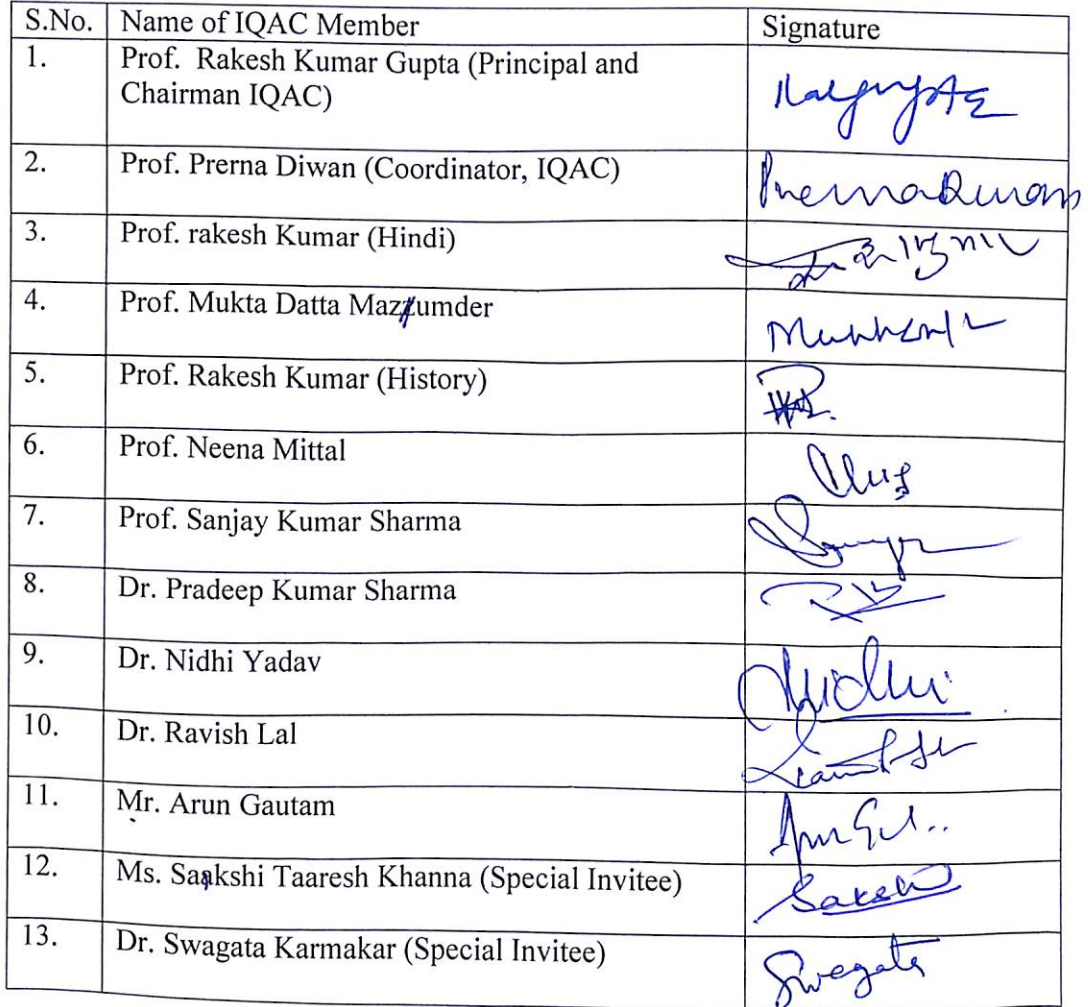 S.No. Name of IQAC Member Signature
1. Prof. Rakesh Kumar Gupta (Principal and
Chairman IQAC)
2. Prof. Prerna Diwan (Coordinator, IQAC) Prerna Diwan
3. Prof. rakesh Kumar (Hindi)
4. Prof. Mukta Datta Mazumder
5. Prof. Rakesh Kumar (History)
6. Prof. Neena Mittal
7. Prof. Sanjay Kumar Sharma
8. Dr. Pradeep Kumar Sharma
9. Dr. Nidhi Yadav Nidhi
10. Dr. Ravish Lal
11. Mr. Arun Gautam
12. Ms. Sakshi Taaresh Khanna (Special Invitee) Sakshi
13. Dr. Swagata Karmakar (Special Invitee) Swagata